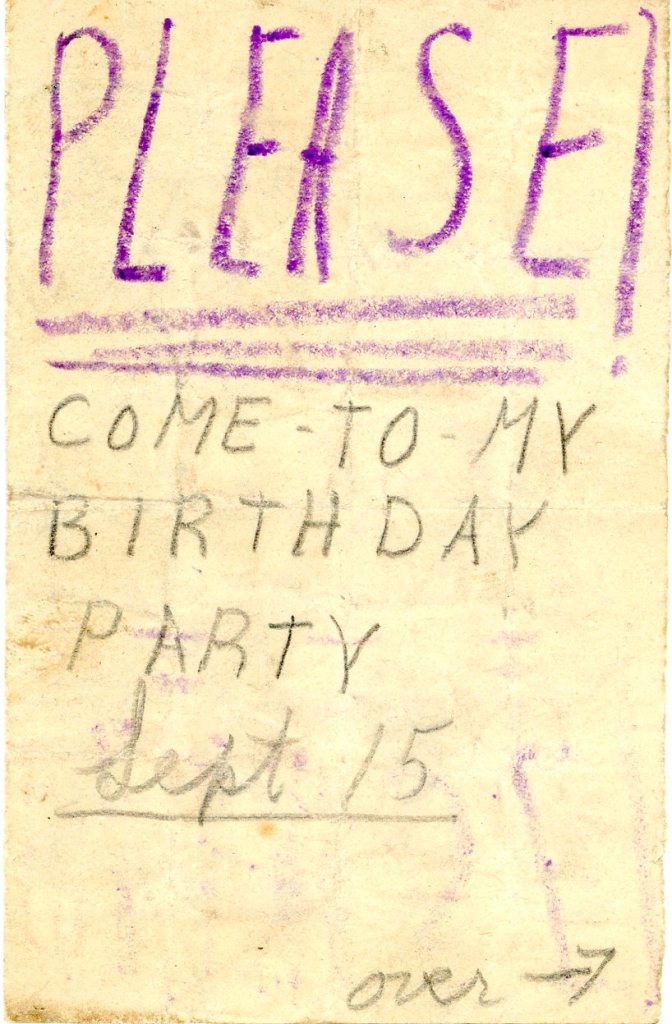 PLEASE!
COME-TO-MY
BIRTHDAY
PARTY
Sept 15
over →